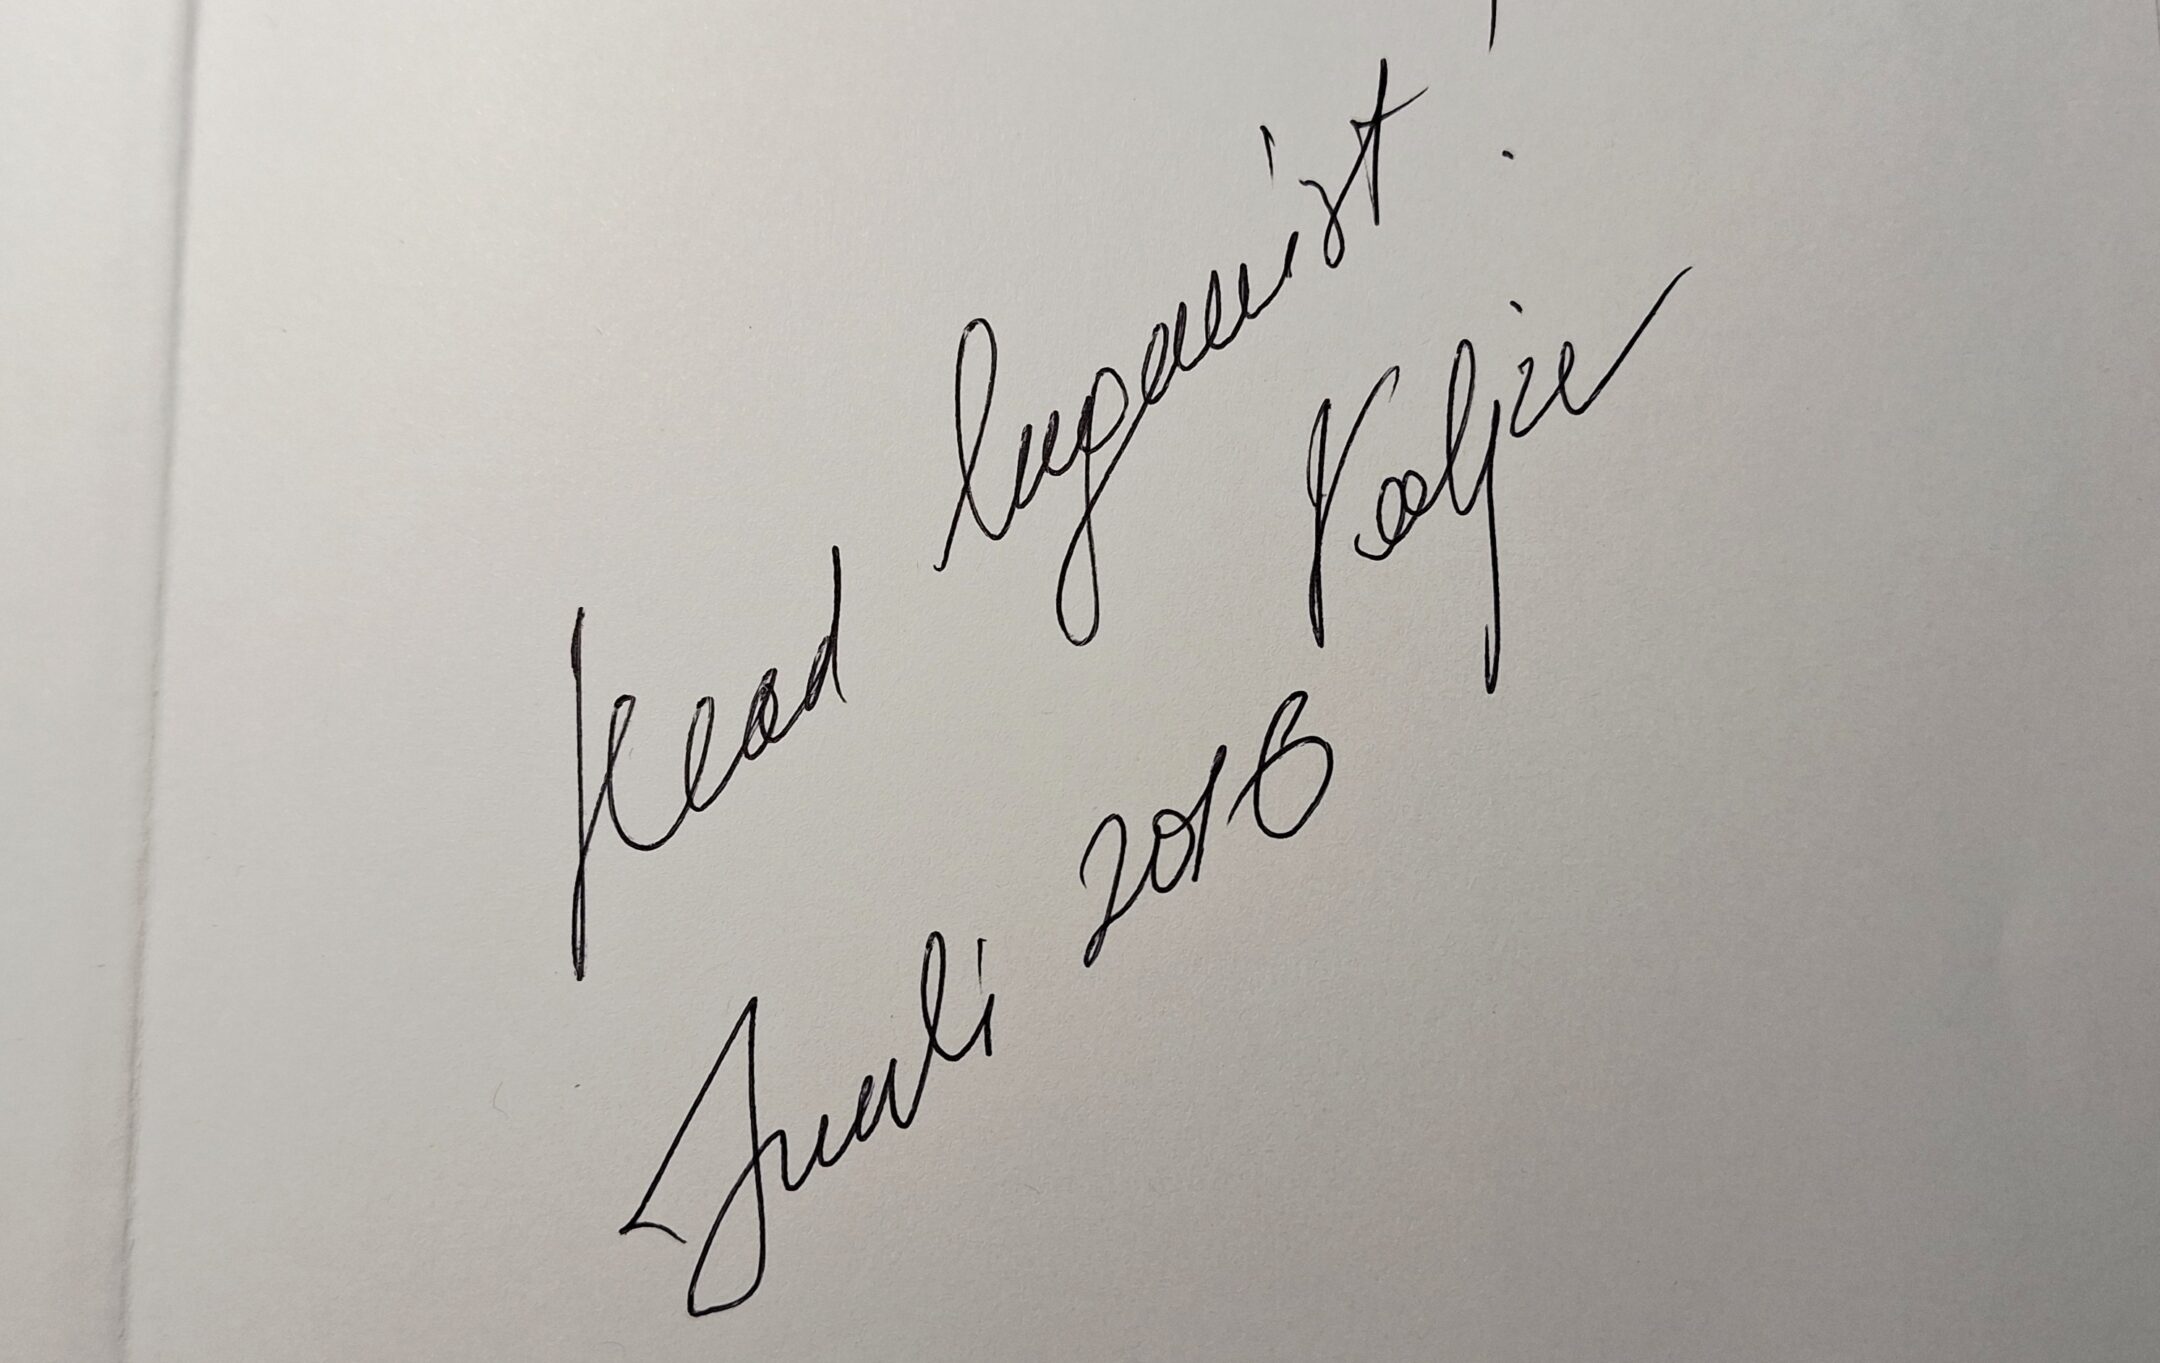 Head lugemist!
Kaljie
Juuli 2016